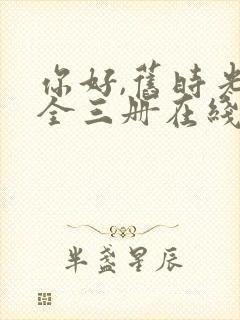 你好,舊時光
全三册在綫
半盞星辰